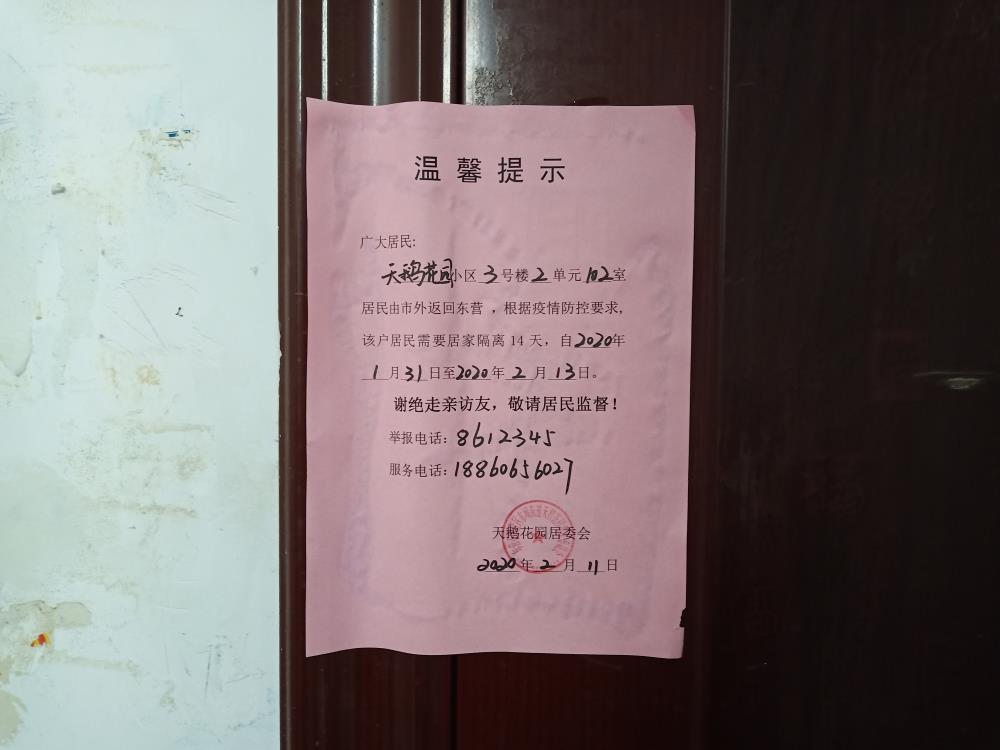 温馨提示
广大居民:
天鹅花园小区3号楼2单元102室
居民由市外返回东营，根据疫情防控要求,
该户居民需要居家隔离14天，自2020年
1月31日至2020年2月13日。
谢绝走亲访友，敬请居民监督！
举报电话：8612345
服务电话：18860656027
天鹅花园居委会
2020年2月11日